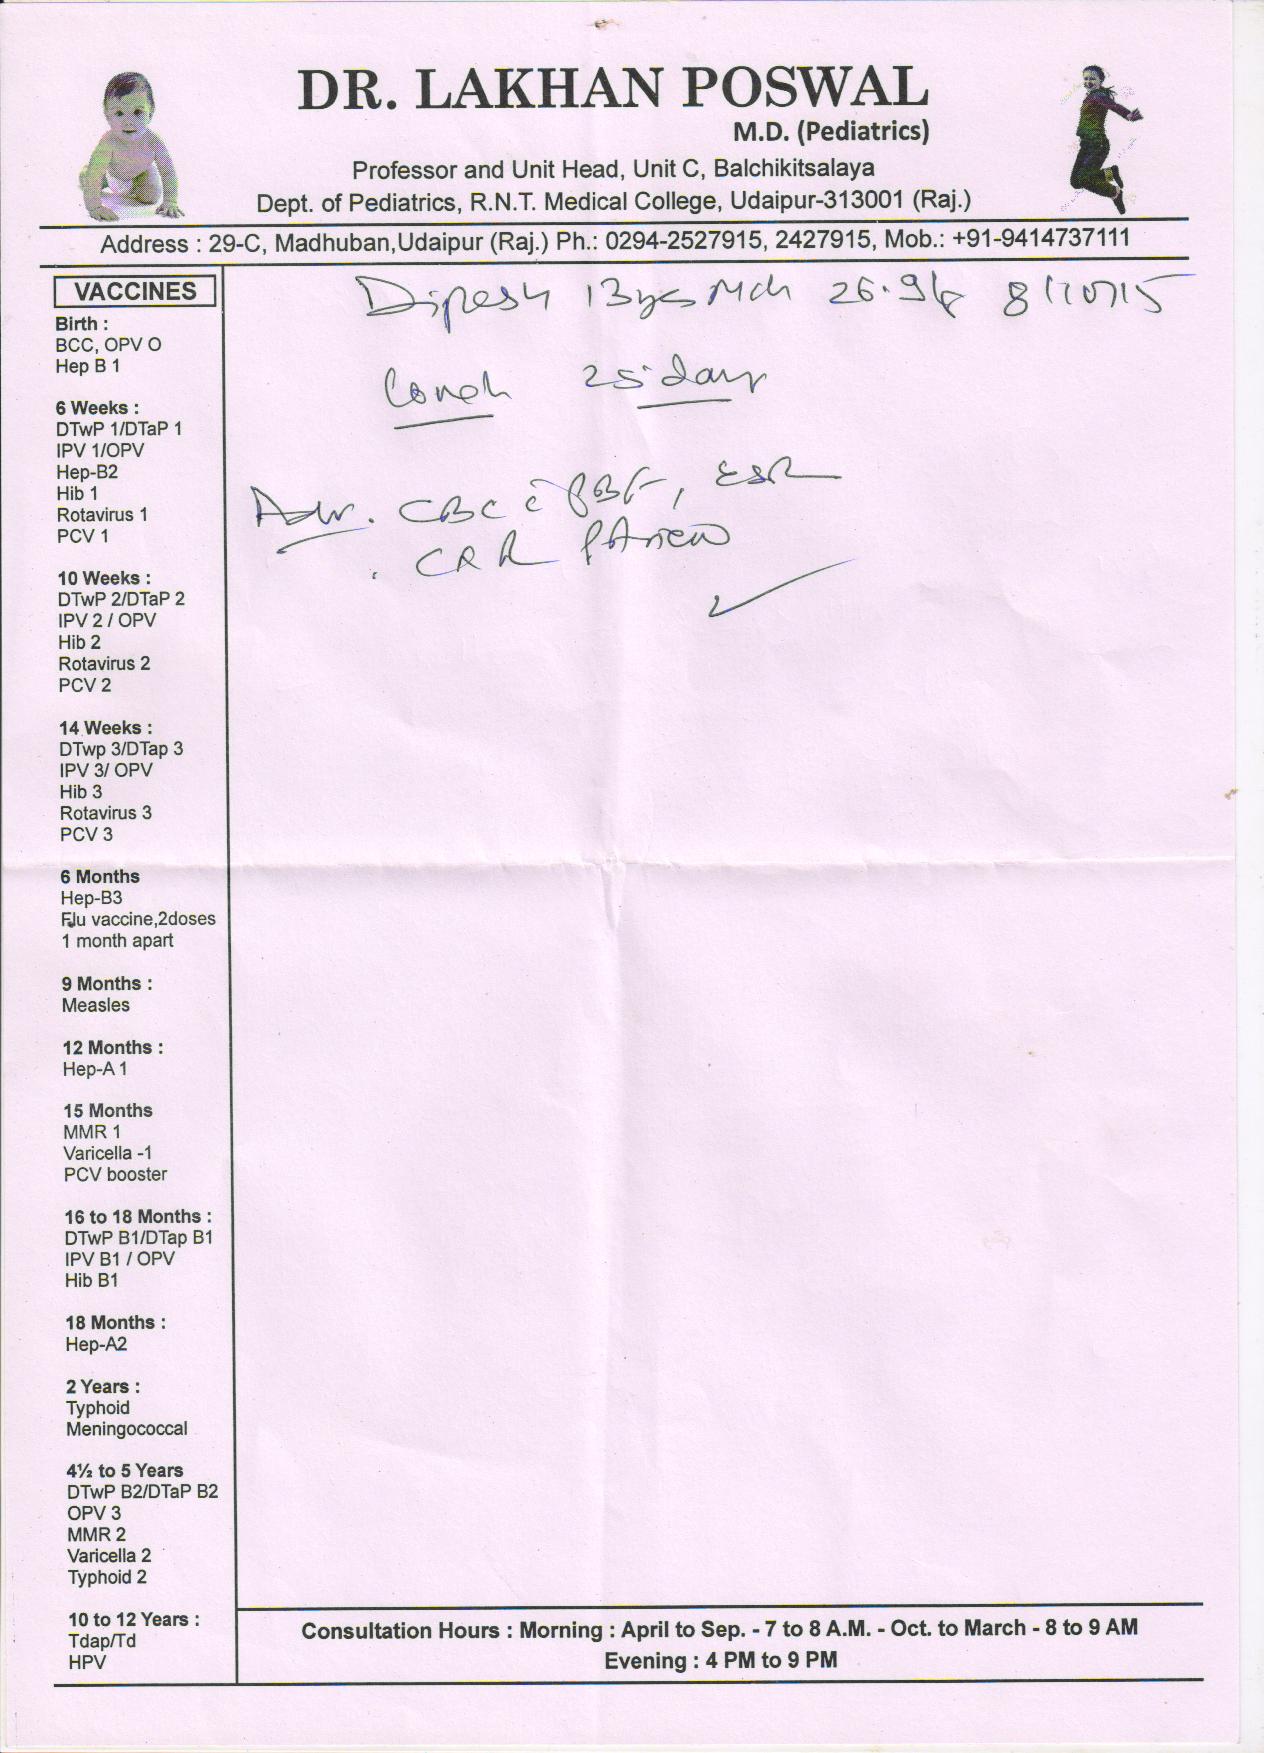 DR. LAKHAN POSWAL
M.D. (Pediatrics)
Professor and Unit Head, Unit C, Balchikitsalaya
Dept. of Pediatrics, R.N.T. Medical College, Udaipur-313001 (Raj.)
Address : 29-C, Madhuban,Udaipur (Raj.) Ph.: 0294-2527915, 2427915, Mob.: +91-9414737111
VACCINES
Birth :
BCC, OPV O
Hep B 1
6 Weeks :
DTwP 1/DTaP 1
IPV 1/OPV
Hep-B2
Hib 1
Rotavirus 1
PCV 1
10 Weeks :
DTwP 2/DTaP 2
IPV 2 / OPV
Hib 2
Rotavirus 2
PCV 2
14 Weeks :
DTwp 3/DTap 3
IPV 3/ OPV
Hib 3
Rotavirus 3
PCV 3
6 Months
Hep-B3
Flu vaccine,2doses
1 month apart
9 Months :
Measles
12 Months :
Hep-A 1
15 Months
MMR 1
Varicella -1
PCV booster
16 to 18 Months :
DTwP B1/DTap B1
IPV B1 / OPV
Hib B1
18 Months :
Hep-A2
2 Years :
Typhoid
Meningococcal
4½ to 5 Years
DTwP B2/DTaP B2
OPV 3
MMR 2
Varicella 2
Typhoid 2
10 to 12 Years :
Tdap/Td
HPV
Dipesh 13 yrs Mch 26.9 kg 8/10/15
Cough 25 days
Adv. CBC c̄ PBF, ESR
. CXR PA view
Consultation Hours : Morning : April to Sep. - 7 to 8 A.M. - Oct. to March - 8 to 9 AM
Evening : 4 PM to 9 PM